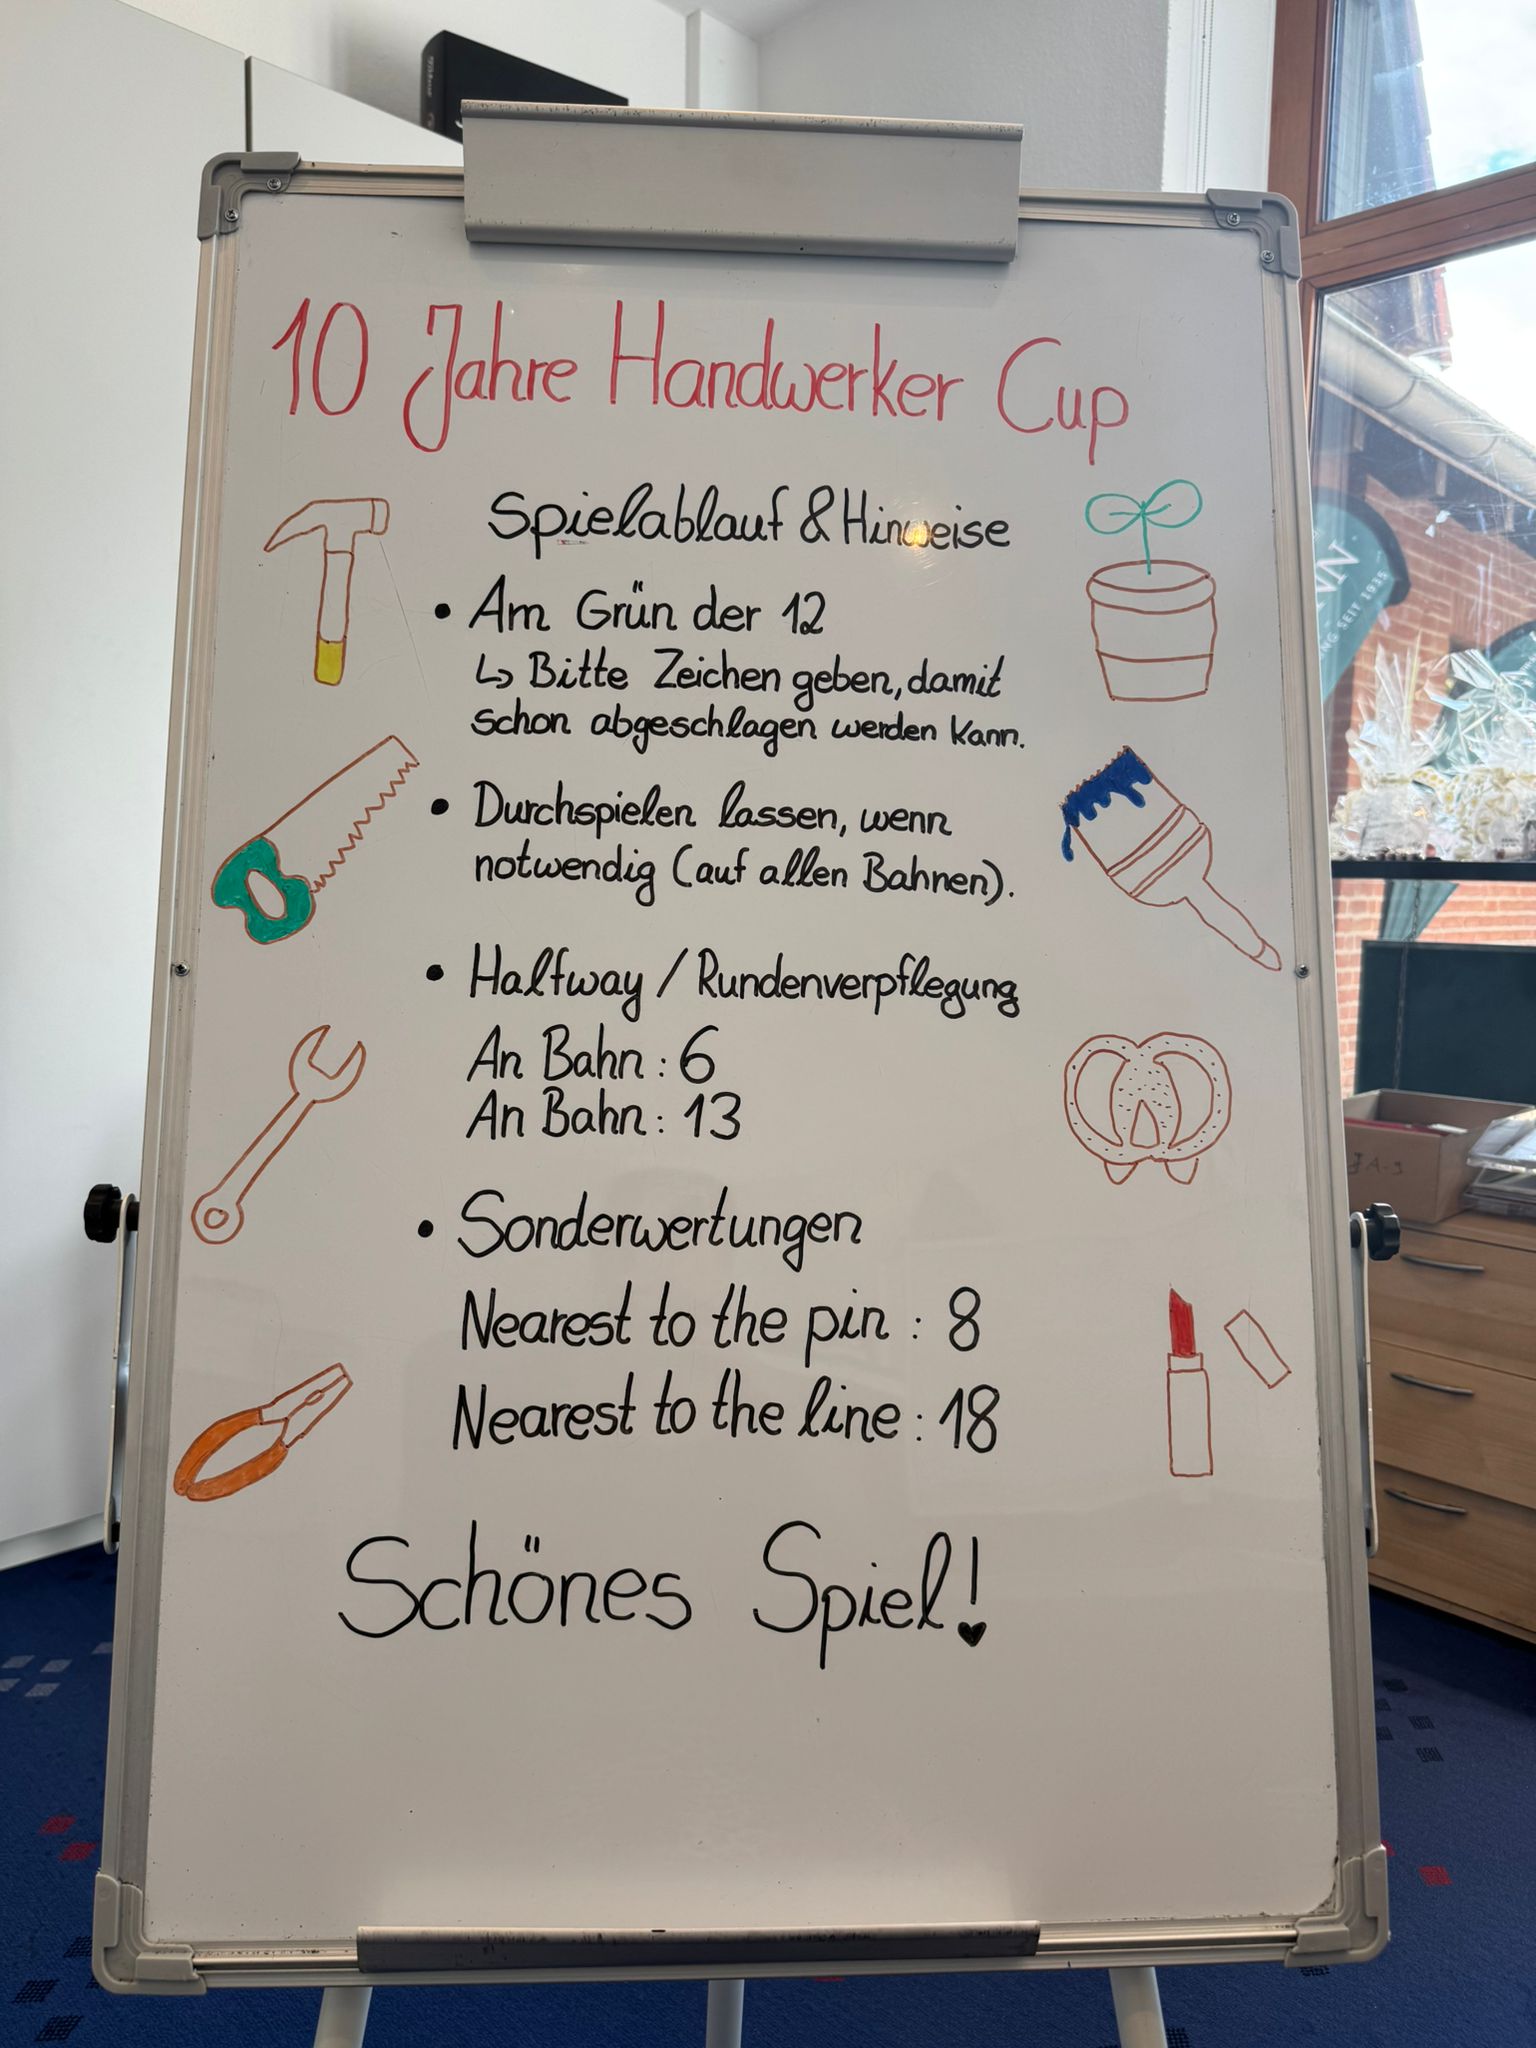 10 Jahre Handwerker Cup
Spielablauf & Hinweise
• Am Grün der 12
↳ Bitte Zeichen geben, damit
schon abgeschlagen werden kann.
• Durchspielen lassen, wenn
notwendig (auf allen Bahnen).
• Halfway / Rundenverpflegung
An Bahn: 6
An Bahn: 13
• Sonderwertungen
Nearest to the pin: 8
Nearest to the line: 18
Schönes Spiel!
NN
NG SEIT 1935